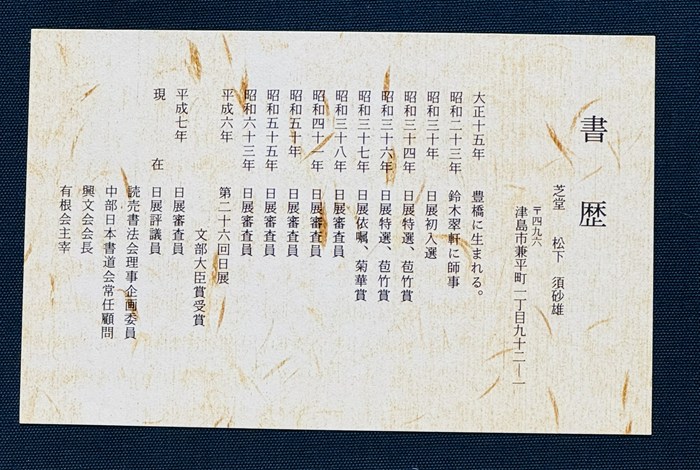 書歴
芝堂 松下 須砂雄
〒四九六
津島市兼平町一丁目九十二ー一
大正十五年 豊橋に生まれる。
昭和二十三年 鈴木翠軒に師事
昭和三十年 日展初入選
昭和三十四年 日展特選、苞竹賞
昭和三十六年 日展特選、苞竹賞
昭和三十七年 日展依嘱、菊華賞
昭和三十八年 日展審査員
昭和四十一年 日展審査員
昭和五十年 日展審査員
昭和五十五年 日展審査員
昭和六十三年 日展審査員
平成六年 第二十六回日展
文部大臣賞受賞
平成七年 日展審査員
現在 日展評議員
読売書法会理事企画委員
中部日本書道会常任顧問
興文会会長
有根会主宰